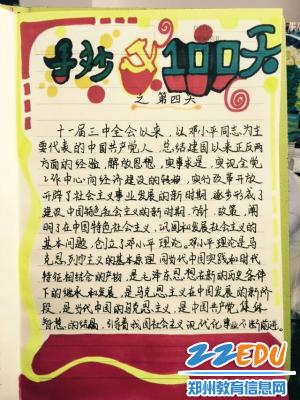 手抄党100天
之第四天
十一届三中全会以来，以邓小平同志为主
要代表的中国共产党人，总结建国以来正反两
方面的经验，解放思想，实事求是，实现全党
工作中心向经济建设的转移，实行改革开放，
开辟了社会主义事业发展的新时期，逐步形成了
建设中国特色社会主义的新时期方针、政策，阐
明了在中国特色社会主义、巩固和发展社会主义的
基本问题，创立了邓小平理论。邓小平理论是马
克思列宁主义的基本原理同当代中国实践和时代
特征相结合的产物，是毛泽东思想在新的历史条件
下的继承和发展，是马克思主义在中国发展的新阶
段，是当代中国的马克思主义，是中国共产党集体
智慧的结晶，引导着我国社会主义现代化事业不断前进。
22EDU
郑州教育信息网